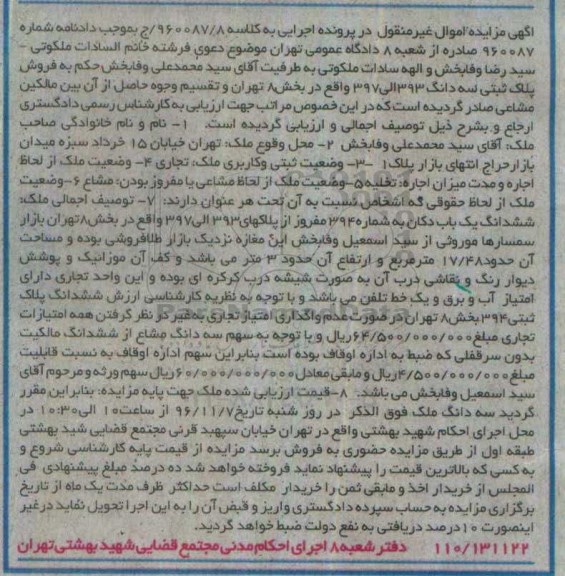 آگهی مزایده اموال غیرمنقول در پرونده اجرایی به کلاسه ۹۶۰۰۸۷/۸/ج بموجب دادنامه شماره
۹۶۰۰۸۷ صادره از شعبه ۸ دادگاه عمومی تهران موضوع دعوی فرشته خانم السادات ملکوتی -
سید رضا وفابخش و الهه سادات ملکوتی به طرفیت آقای سید محمدعلی وفابخش حکم به فروش
پلاک ثبتی سه دانگ ۳۹۳الی۳۹۷ واقع در بخش۸ تهران و تقسیم وجوه حاصل از آن بین مالکین
مشاعی صادر گردیده است که در این خصوص مراتب جهت ارزیابی به کارشناس رسمی دادگستری
ارجاع و بشرح ذیل توصیف اجمالی و ارزیابی گردیده است. ۱- نام و نام خانوادگی صاحب
ملک: آقای سید محمدعلی وفابخش ۲- محل وقوع ملک: تهران خیابان ۱۵ خرداد سبزه میدان
بازار حراج انتهای بازار پلاک۱ ۳- وضعیت ثبتی وکاربری ملک: تجاری ۴- وضعیت ملک از لحاظ
اجاره و مدت میزان اجاره: تخلیه ۵- وضعیت ملک از لحاظ مشاعی یا مفروز بودن: مشاع ۶-وضعیت
ملک از لحاظ حقوقی که اشخاص نسبت به آن تحت هر عنوان دارند: ۷- توصیف اجمالی ملک:
ششدانگ یک باب دکان به شماره۳۹۴ مفروز از پلاکهای۳۹۳ الی۳۹۷ واقع در بخش۸تهران بازار
سمسارها موروثی از سید اسمعیل وفابخش این مغازه نزدیک بازار طلافروشی بوده و مساحت
آن حدود۱۷/۴۸ مترمربع و ارتفاع آن حدود ۳ متر می باشد و کف آن موزائیک و پوشش
دیوار رنگ و نقاشی درب آن به صورت شیشه درب کرکره ای بوده و این واحد تجاری دارای
امتیاز آب و برق و یک خط تلفن می باشد و با توجه به نظریه کارشناسی ارزش ششدانگ پلاک
ثبتی۳۹۴ بخش۸ تهران در صورت عدم واگذاری امتیاز تجاری به غیر در نظر گرفتن همه امتیازات
تجاری مبلغ۶۴/۵۰۰/۰۰۰/۰۰۰ریال و با توجه به سهم سه دانگ مشاع از ششدانگ مالکیت
بدون سرقفلی که ضبط به اداره اوقاف بوده است بنابراین سهم اداره اوقاف به نسبت قابلیت
مبلغ۴/۵۰۰/۰۰۰/۰۰۰ریال و مابقی معادل۶۰/۰۰۰/۰۰۰/۰۰۰ریال سهم ورثه و مرحوم آقای
سید اسمعیل وفابخش می باشد. ۸-قیمت ارزیابی شده ملک جهت پایه مزایده: بنابر این مقرر
گردید سه دانگ ملک فوق الذکر در روز شنبه تاریخ۹۶/۱۱/۷ از ساعت۱۰ الی۱۰:۳۰ در
محل اجرای احکام شهید بهشتی واقع در تهران خیابان سپهبد قرنی مجتمع قضایی شید بهشتی
طبقه اول از طریق مزایده حضوری به فروش برسد مزایده از قیمت پایه کارشناسی شروع و
به کسی که بالاترین قیمت را پیشنهاد نماید فروخته خواهد شد ده درصد مبلغ پیشنهادی فی
المجلس از خریدار اخذ و مابقی ثمن را خریدار مکلف است حداکثر ظرف مدت یک ماه از تاریخ
برگزاری مزایده به حساب سپرده دادگستری واریز و قبض آن را به این اجرا تحویل نماید در غیر
اینصورت ۱۰درصد دریافتی به نفع دولت ضبط خواهد گردید.
۱۱۰/۱۳۱۱۲۲ دفتر شعبه۸ اجرای احکام مدنی مجتمع قضایی شهید بهشتی تهران